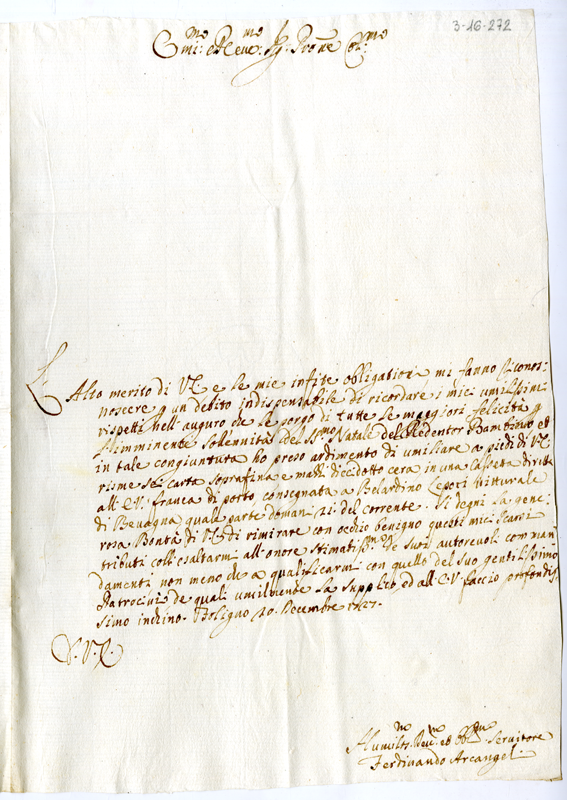 3-16-272
Emi:mo e Reve:mo Sig: Prone Col:mo
L'Alto merito di VE. e le mie infite obligationi mi fanno Riconos:
noscere p un debito indispensabile di ricordare i miei umilissimi
rispetti nell'auguro che le porgo di tutte le maggiori felicità p
l'imminente sollennità del SS:mo Natale del Redentor Bambino et
in tale congiuntura ho preso ardimento di umiliare a piedi di VE.
risme sei carta soprafina e mazzi diecidotto cera in una Cassetta diretta
all'E.V. franca di porto consegnata a Belardino Lepori vitturale
di Bevagna quale parte doman: 21. del corrente. Si degni la gene:
rosa Bontà di VE. di rimirare con occhio benigno questi miei scarsi
tributi coll'esaltarmi all'onore stimatiss:mo de suoi autorevoli coman
damenti non meno che a qualificarmi con quello del suo gentilissimo
Patrocinio de quali umilmente la supplico, ed all'E.V. faccio profondis
simo inchino. Foligno 20. Decembre 1727.
D.V.E.
Humilis:mo Dev:mo ed Obl:mo Servitore
Ferdinando Arcangeli